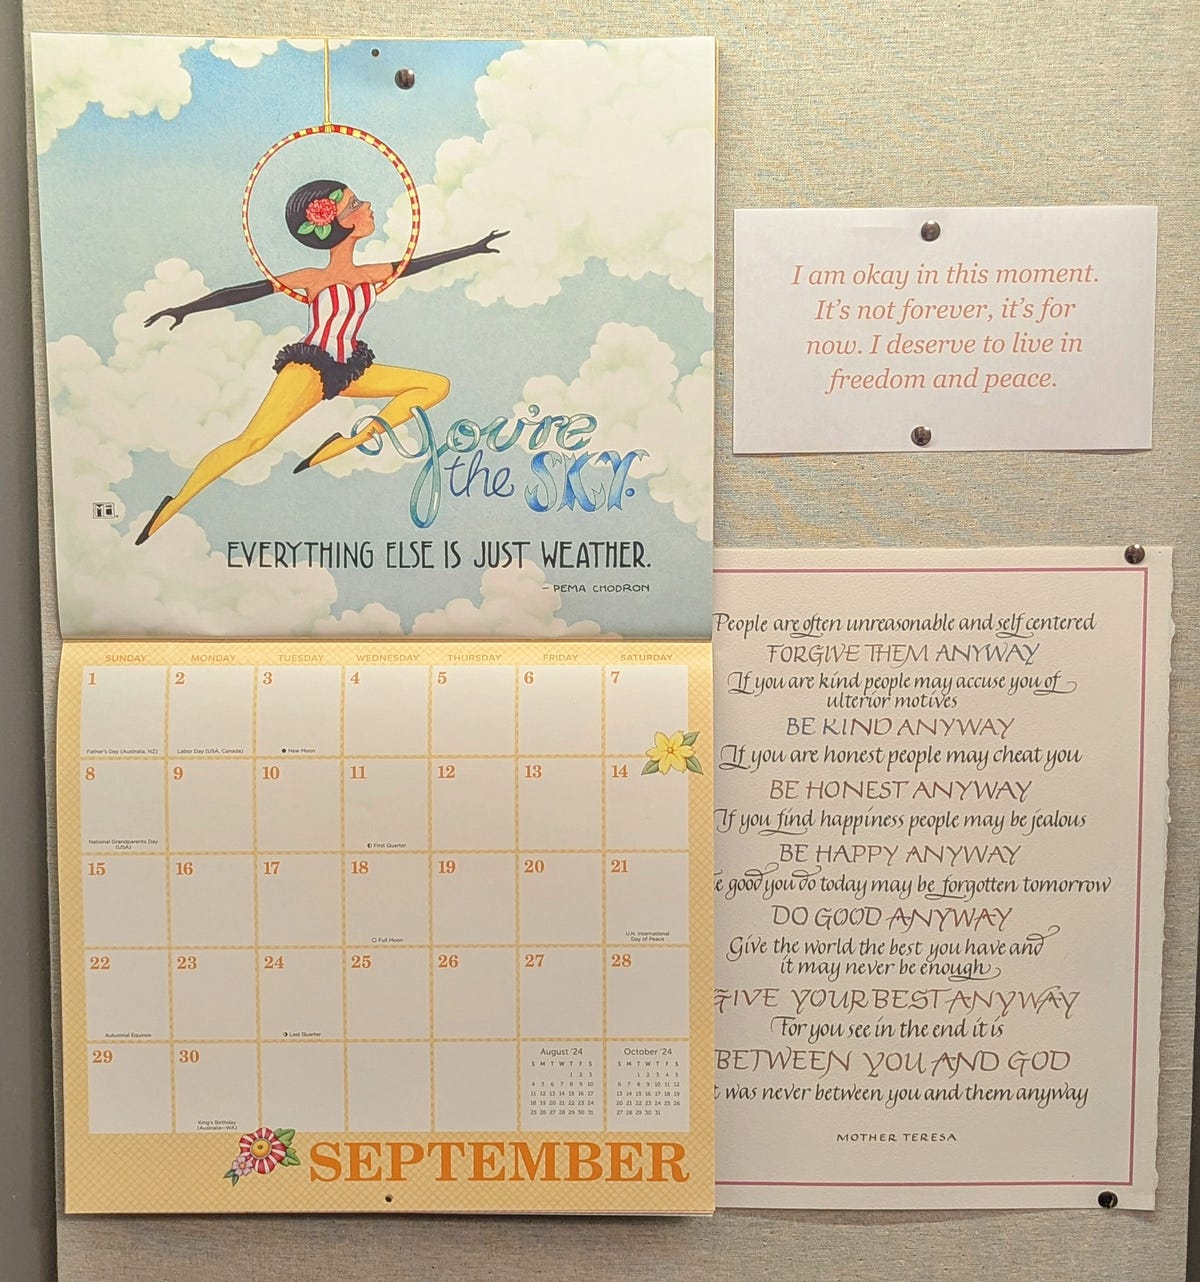 You're
the SKY.
EVERYTHING ELSE IS JUST WEATHER.
– PEMA CHODRON
SUNDAY MONDAY TUESDAY WEDNESDAY THURSDAY FRIDAY SATURDAY
1 2 3 4 5 6 7
Father's Day (Australia, NZ) Labor Day (USA, Canada) New Moon
8 9 10 11 12 13 14
National Grandparents Day
(USA) First Quarter
15 16 17 18 19 20 21
Full Moon U.N. International
Day of Peace
22 23 24 25 26 27 28
Autumnal Equinox Last Quarter
29 30
King's Birthday
(Australia—WA)
August '24
S M T W T F S
1 2 3
4 5 6 7 8 9 10
11 12 13 14 15 16 17
18 19 20 21 22 23 24
25 26 27 28 29 30 31
October '24
S M T W T F S
1 2 3 4 5
6 7 8 9 10 11 12
13 14 15 16 17 18 19
20 21 22 23 24 25 26
27 28 29 30 31
SEPTEMBER
I am okay in this moment.
It's not forever, it's for
now. I deserve to live in
freedom and peace.
People are often unreasonable and self centered
FORGIVE THEM ANYWAY
If you are kind people may accuse you of
ulterior motives
BE KIND ANYWAY
If you are honest people may cheat you
BE HONEST ANYWAY
If you find happiness people may be jealous
BE HAPPY ANYWAY
e good you do today may be forgotten tomorrow
DO GOOD ANYWAY
Give the world the best you have and
it may never be enough
GIVE YOUR BEST ANYWAY
For you see in the end it is
BETWEEN YOU AND GOD
t was never between you and them anyway
MOTHER TERESA